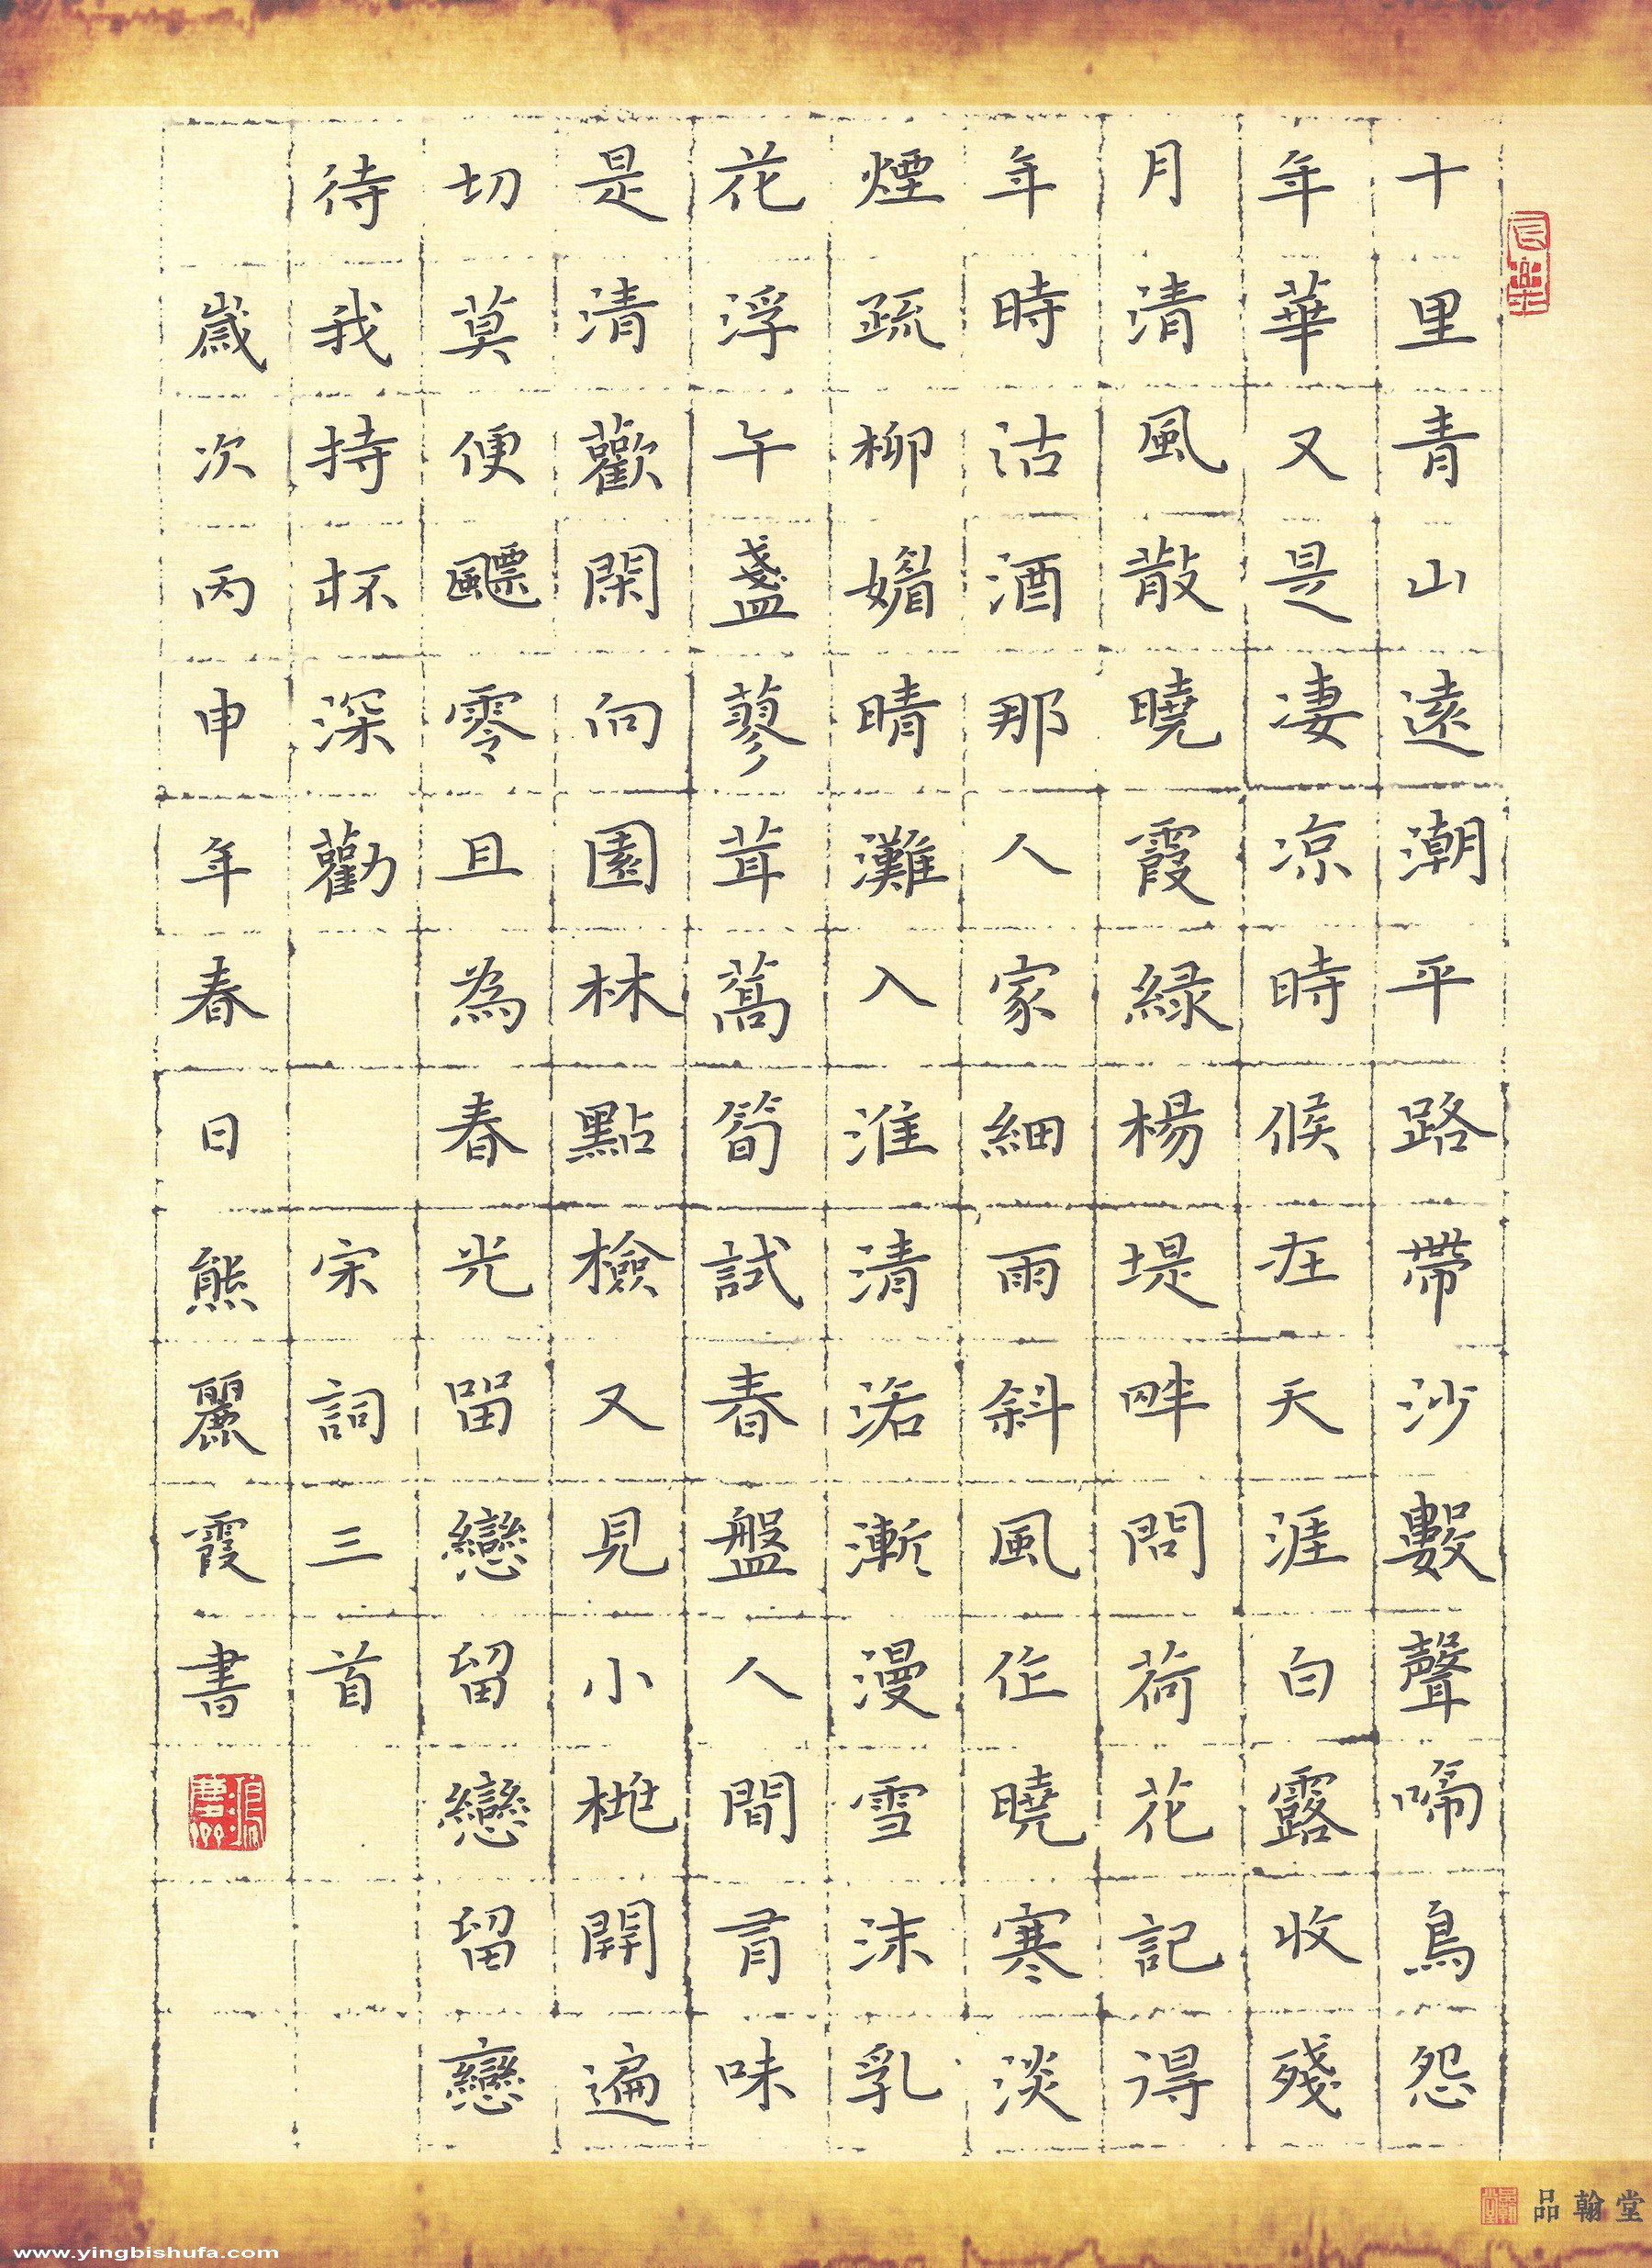 十里青山遠潮平路帶沙數聲啼鳥怨
年華又是淒凉時候在天涯白露收殘
月清風散曉霞綠楊堤畔問荷花記得
年時沽酒那人家細雨斜風作曉寒淡
煙疏柳媚晴灘入淮清洛漸漫雪沫乳
花浮午盞蓼茸蒿筍試春盤人間有味
是清歡閑向園林點檢又見小桃開遍
切莫便飄零且為春光留戀留戀留戀
待我持杯深勸 宋詞三首
歲次丙申年春日熊麗霞書
品翰堂
www.yingbishufa.com